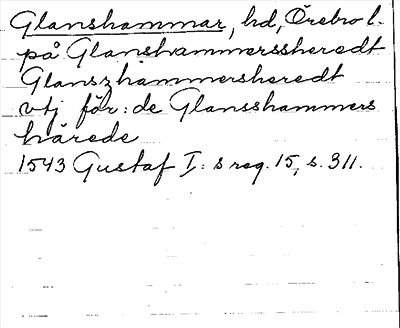 Glanshammar, hd, Örebro l.
på Glanshammerssheredt
Glanszhammersheredt
vtj för: de Glansshammers
härede
1543 Gustaf I: s reg. 15, s. 311.